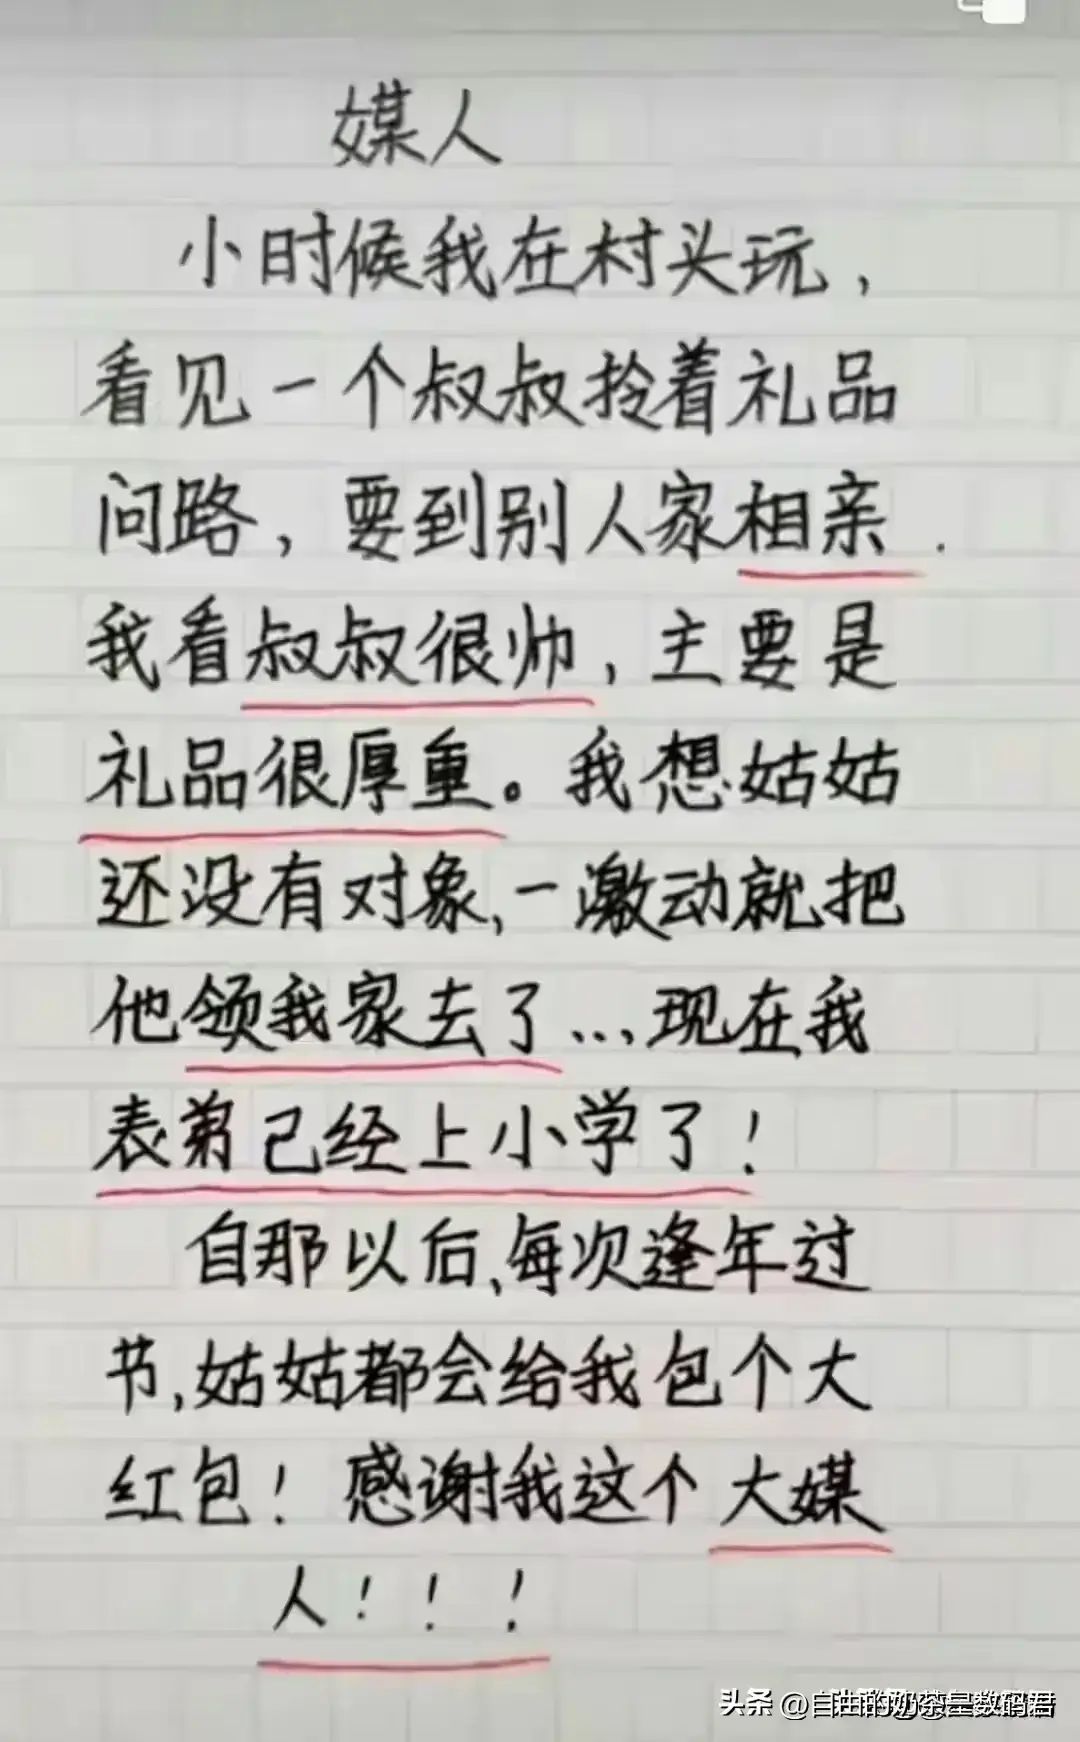 媒人
小时候我在村头玩，
看见一个叔叔拎着礼品
问路，要到别人家相亲.
我看叔叔很帅，主要是
礼品很厚重。我想姑姑
还没有对象，一激动就把
他领我家去了...现在我
表弟已经上小学了！
自那以后，每次逢年过
节，姑姑都会给我包个大
红包！感谢我这个大媒
人！！！
头条 @自由的奶茶星数码君